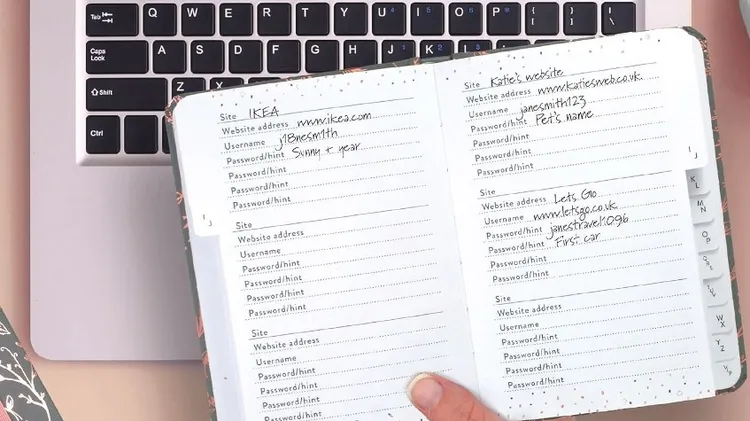 Tab Q W E R T Y U I O P { [ } ]
Caps Lock A S D F G H J K L
Shift Z X
Ctrl
Site IKEA
Website address www.ikea.com
Username j18nesm1th
Password/hint Sunny + year
Password/hint
Password/hint
Password/hint
Site
Website address
Username
Password/hint
Password/hint
Password/hint
Password/hint
Site
Website address
Username
Password/hint
Password/hint
Password/hint
Password/hint
I J
Site Katie's website
Website address www.katiesweb.co.uk
Username janesmith123
Password/hint Pet's name
Password/hint
Password/hint
Password/hint
Site
Website address Lets Go
Username www.letsgo.co.uk
Password/hint janestravel1096
Password/hint First car
Password/hint
Password/hint
Site
Website address
Username
Password/hint
Password/hint
Password/hint
Password/hint
I J
K L
M N
O P
W X
Y Z